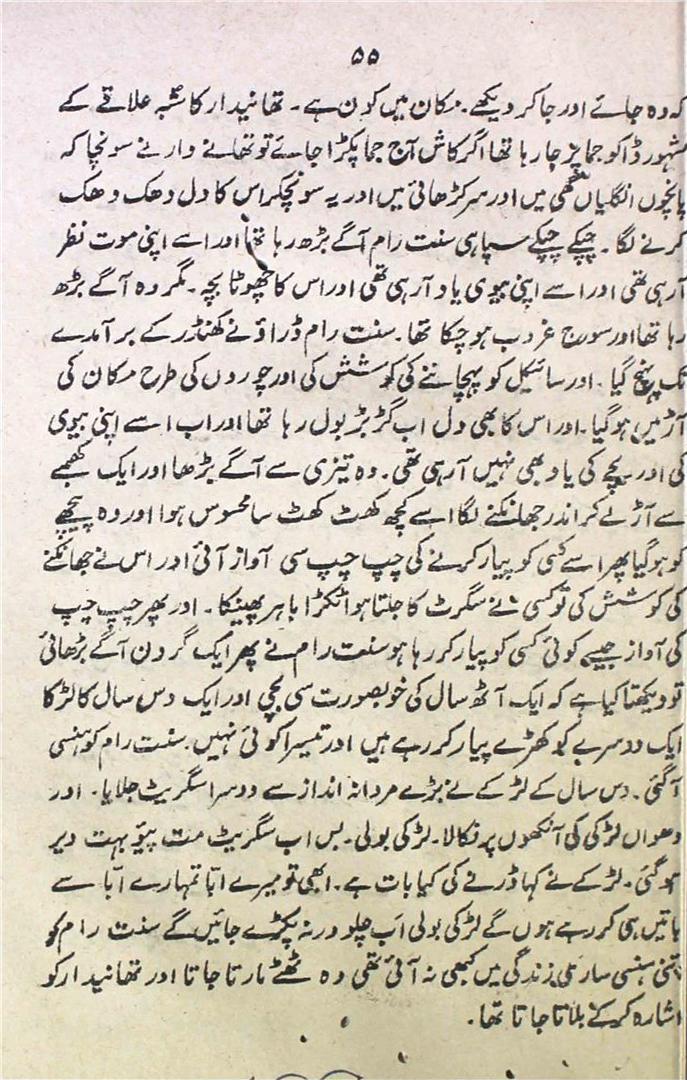 ۵۵
کہ وہ جائے اور جا کر دیکھے۔ مکان میں کون ہے۔ تھانیدار کا شبہ علاقے کے
مشہور ڈاکو جما پر جا رہا تھا اگر کاش آج جما پکڑا جائے تو تھانے دار نے سونچا کہ
پانچوں انگلیاں گھی میں اور سر کڑھائی میں اور یہ سونچکر اس کا دل دھک دھک
کرنے لگا۔ چپکے چپکے سپاہی سنت رام آگے بڑھ رہا تھا اور اسے اپنی موت نظر
آ رہی تھی اور اسے اپنی بیوی یاد آ رہی تھی اور اس کا چھوٹا بچہ۔ مگر وہ آگے بڑھ
رہا تھا اور سورج غروب ہو چکا تھا۔ سنت رام ڈراؤنے کھنڈر کے برآمدے
تک پہنچ گیا۔ اور سائیکل کو پہچاننے کی کوشش کی اور چوروں کی طرح مکان کی
آڑ میں ہو گیا۔ اور اس کا بھی دل اب گڑبڑ بول رہا تھا اور اب اسے اپنی بیوی
کی اور بچے کی یاد بھی نہیں آ رہی تھی۔ وہ تیزی سے آگے بڑھا اور ایک کھمبے
سے آڑ لے کر اندر جھانکنے لگا اسے کچھ کھٹ کھٹ سا محسوس ہوا اور وہ پیچھے
کو ہو گیا پھر اسے کسی کو پیار کرنے کی چپ چپ سی آواز آئی اور اس نے جھانکنے
کی کوشش کی تو کسی نے سگرٹ کا جلتا ہوا ٹکڑا باہر پھینکا۔ اور پھر چپ چپ
کی آواز جیسے کوئی کسی کو پیار کر رہا ہو سنت رام نے پھر ایک گردن آگے بڑھائی
تو دیکھتا کیا ہے کہ ایک آٹھ سال کی خوبصورت سی بچی اور ایک دس سال کا لڑکا
ایک دوسرے کو کھڑے پیار کر رہے ہیں اور تیسرا کوئی نہیں۔ سنت رام کو ہنسی
آ گئی۔ دس سال کے لڑکے نے بڑے مردانہ انداز سے دوسرا سگریٹ جلایا۔ اور
دھواں لڑکی کی آنکھوں پر نکالا۔ لڑکی بولی۔ بس اب سگریٹ مت پیؤ بہت دیر
ہو گئی۔ لڑکے نے کہا ڈرنے کی کیا بات ہے۔ ابھی تو میرے ابا تمہارے ابا سے
باتیں ہی کر رہے ہوں گے لڑکی بولی اب چلو ورنہ پکڑے جائیں گے سنت رام کو
اتنی ہنسی ساری زندگی میں کبھی نہ آئی تھی وہ ٹھٹے مارتا جاتا اور تھانیدار کو
اشارہ کر کے بلاتا جاتا تھا۔